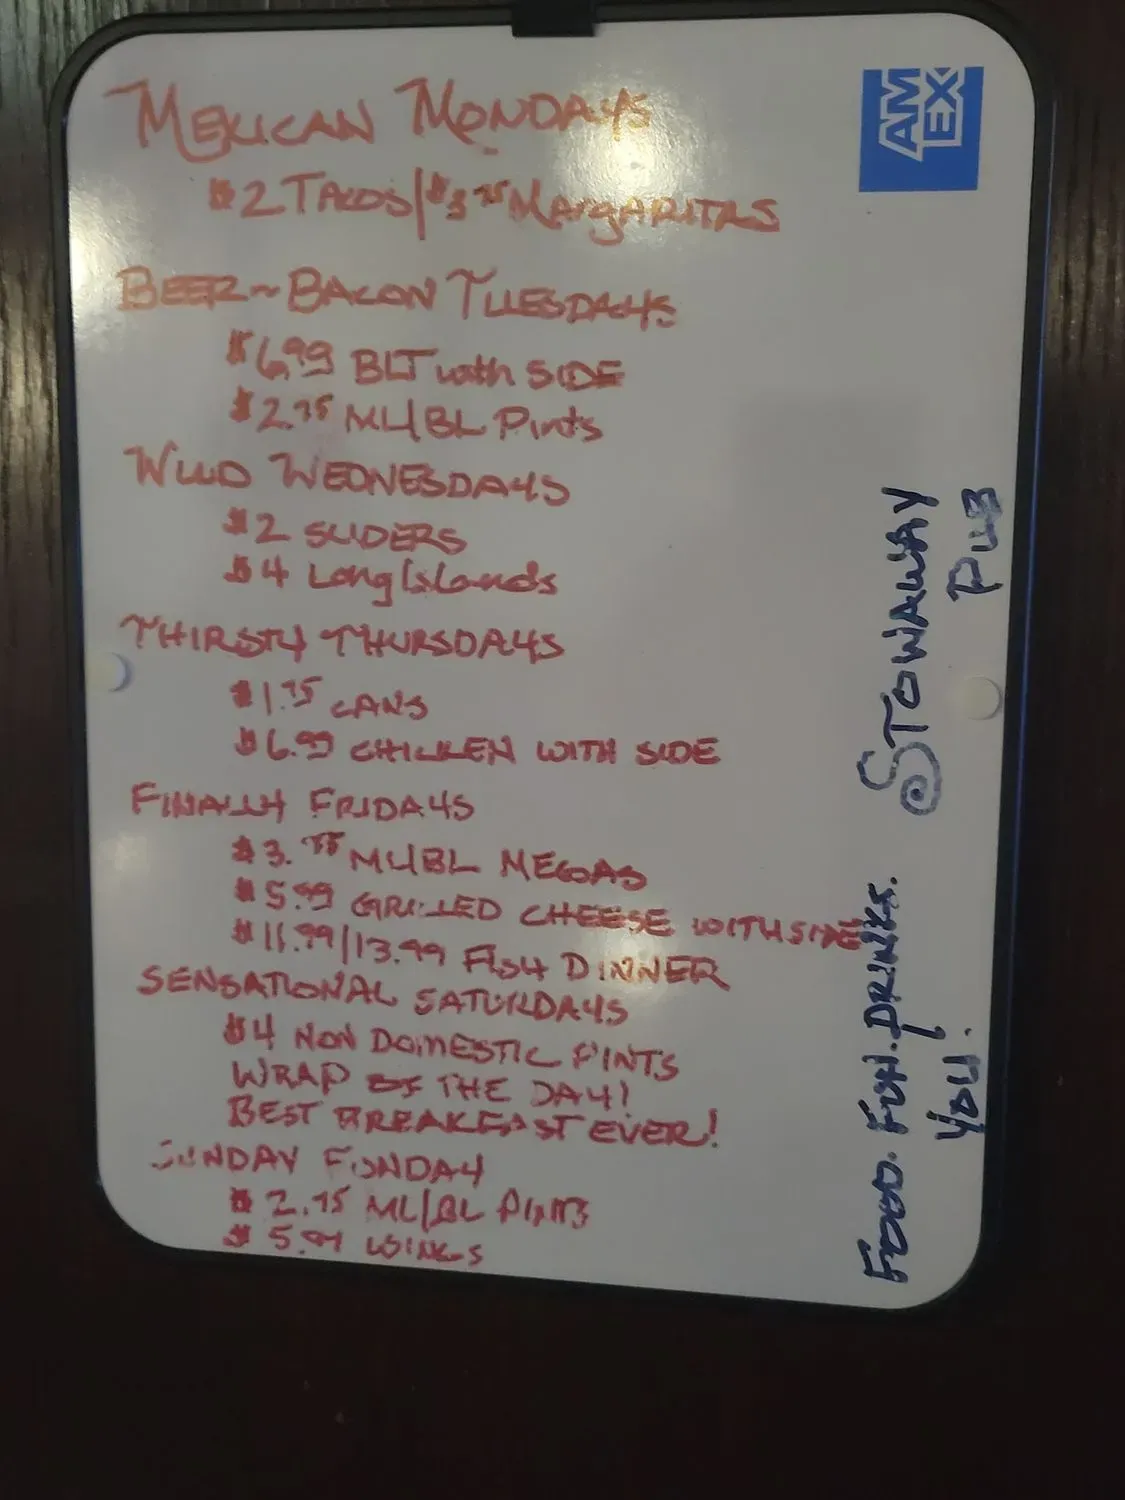 AM
EX
MEXICAN MONDAYS
$2 TACOS/$3.75 MARGARITAS
BEER~BACON TUESDAYS
$6.99 BLT with SIDE
$2.75 ML/BL Pints
WILD WEDNESDAYS
$2 SLIDERS
$4 Long Islands
THIRSTY THURSDAYS
$1.75 CANS
$6.99 CHICKEN WITH SIDE
FINALLY FRIDAYS
$3. ML/BL MEGAS
$5.99 GRILLED CHEESE WITH SIDE
$11.99/13.99 FISH DINNER
SENSATIONAL SATURDAYS
$4 NON DOMESTIC PINTS
WRAP OF THE DAY!
BEST BREAKFAST EVER!
SUNDAY FUNDAY
$2.75 ML/BL PINTS
$5.99 WINGS
STOWAWAY
PUB
FOOD. FUN. DRINKS.
YOU.